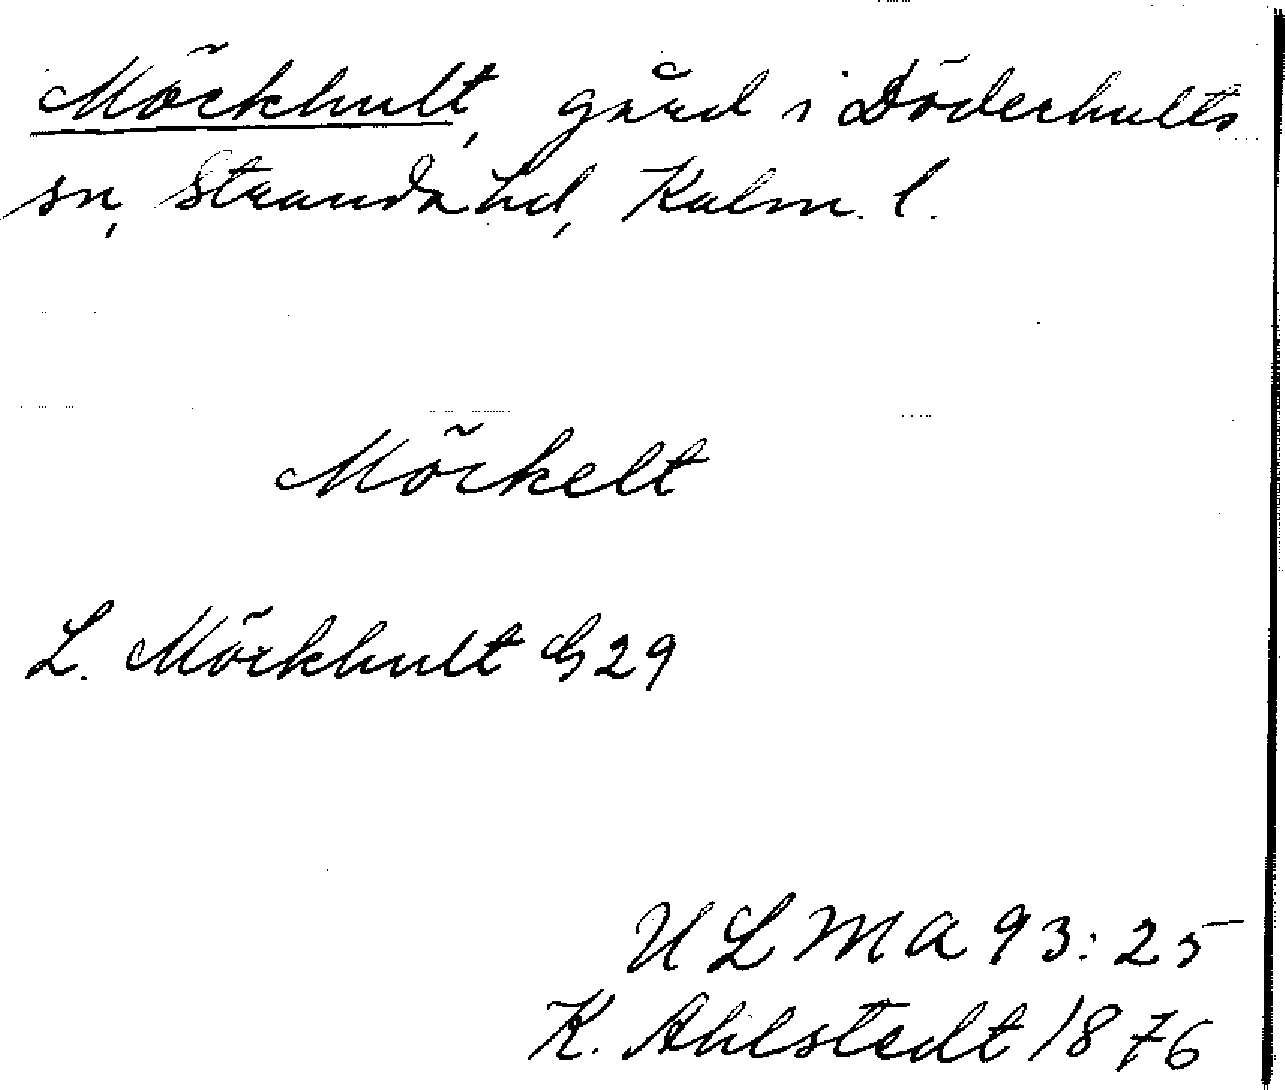 Möckhult, gård i Döderhults
sn, Stranda hd, Kalm. l.
Möckelt
L. Möckhult G 29
ULMA 93:25
K. Ahlstedt 1876